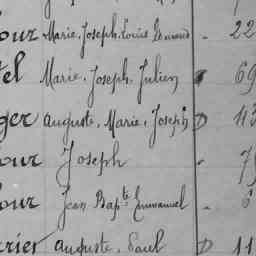 our Marie, Joseph, Louis - 22
tel Marie, Joseph, Julien 69
ger Auguste, Marie, Joseph D 113
our Joseph - 7
our Jean Bapte Emmanuel -
rrier Auguste, Paul D 11